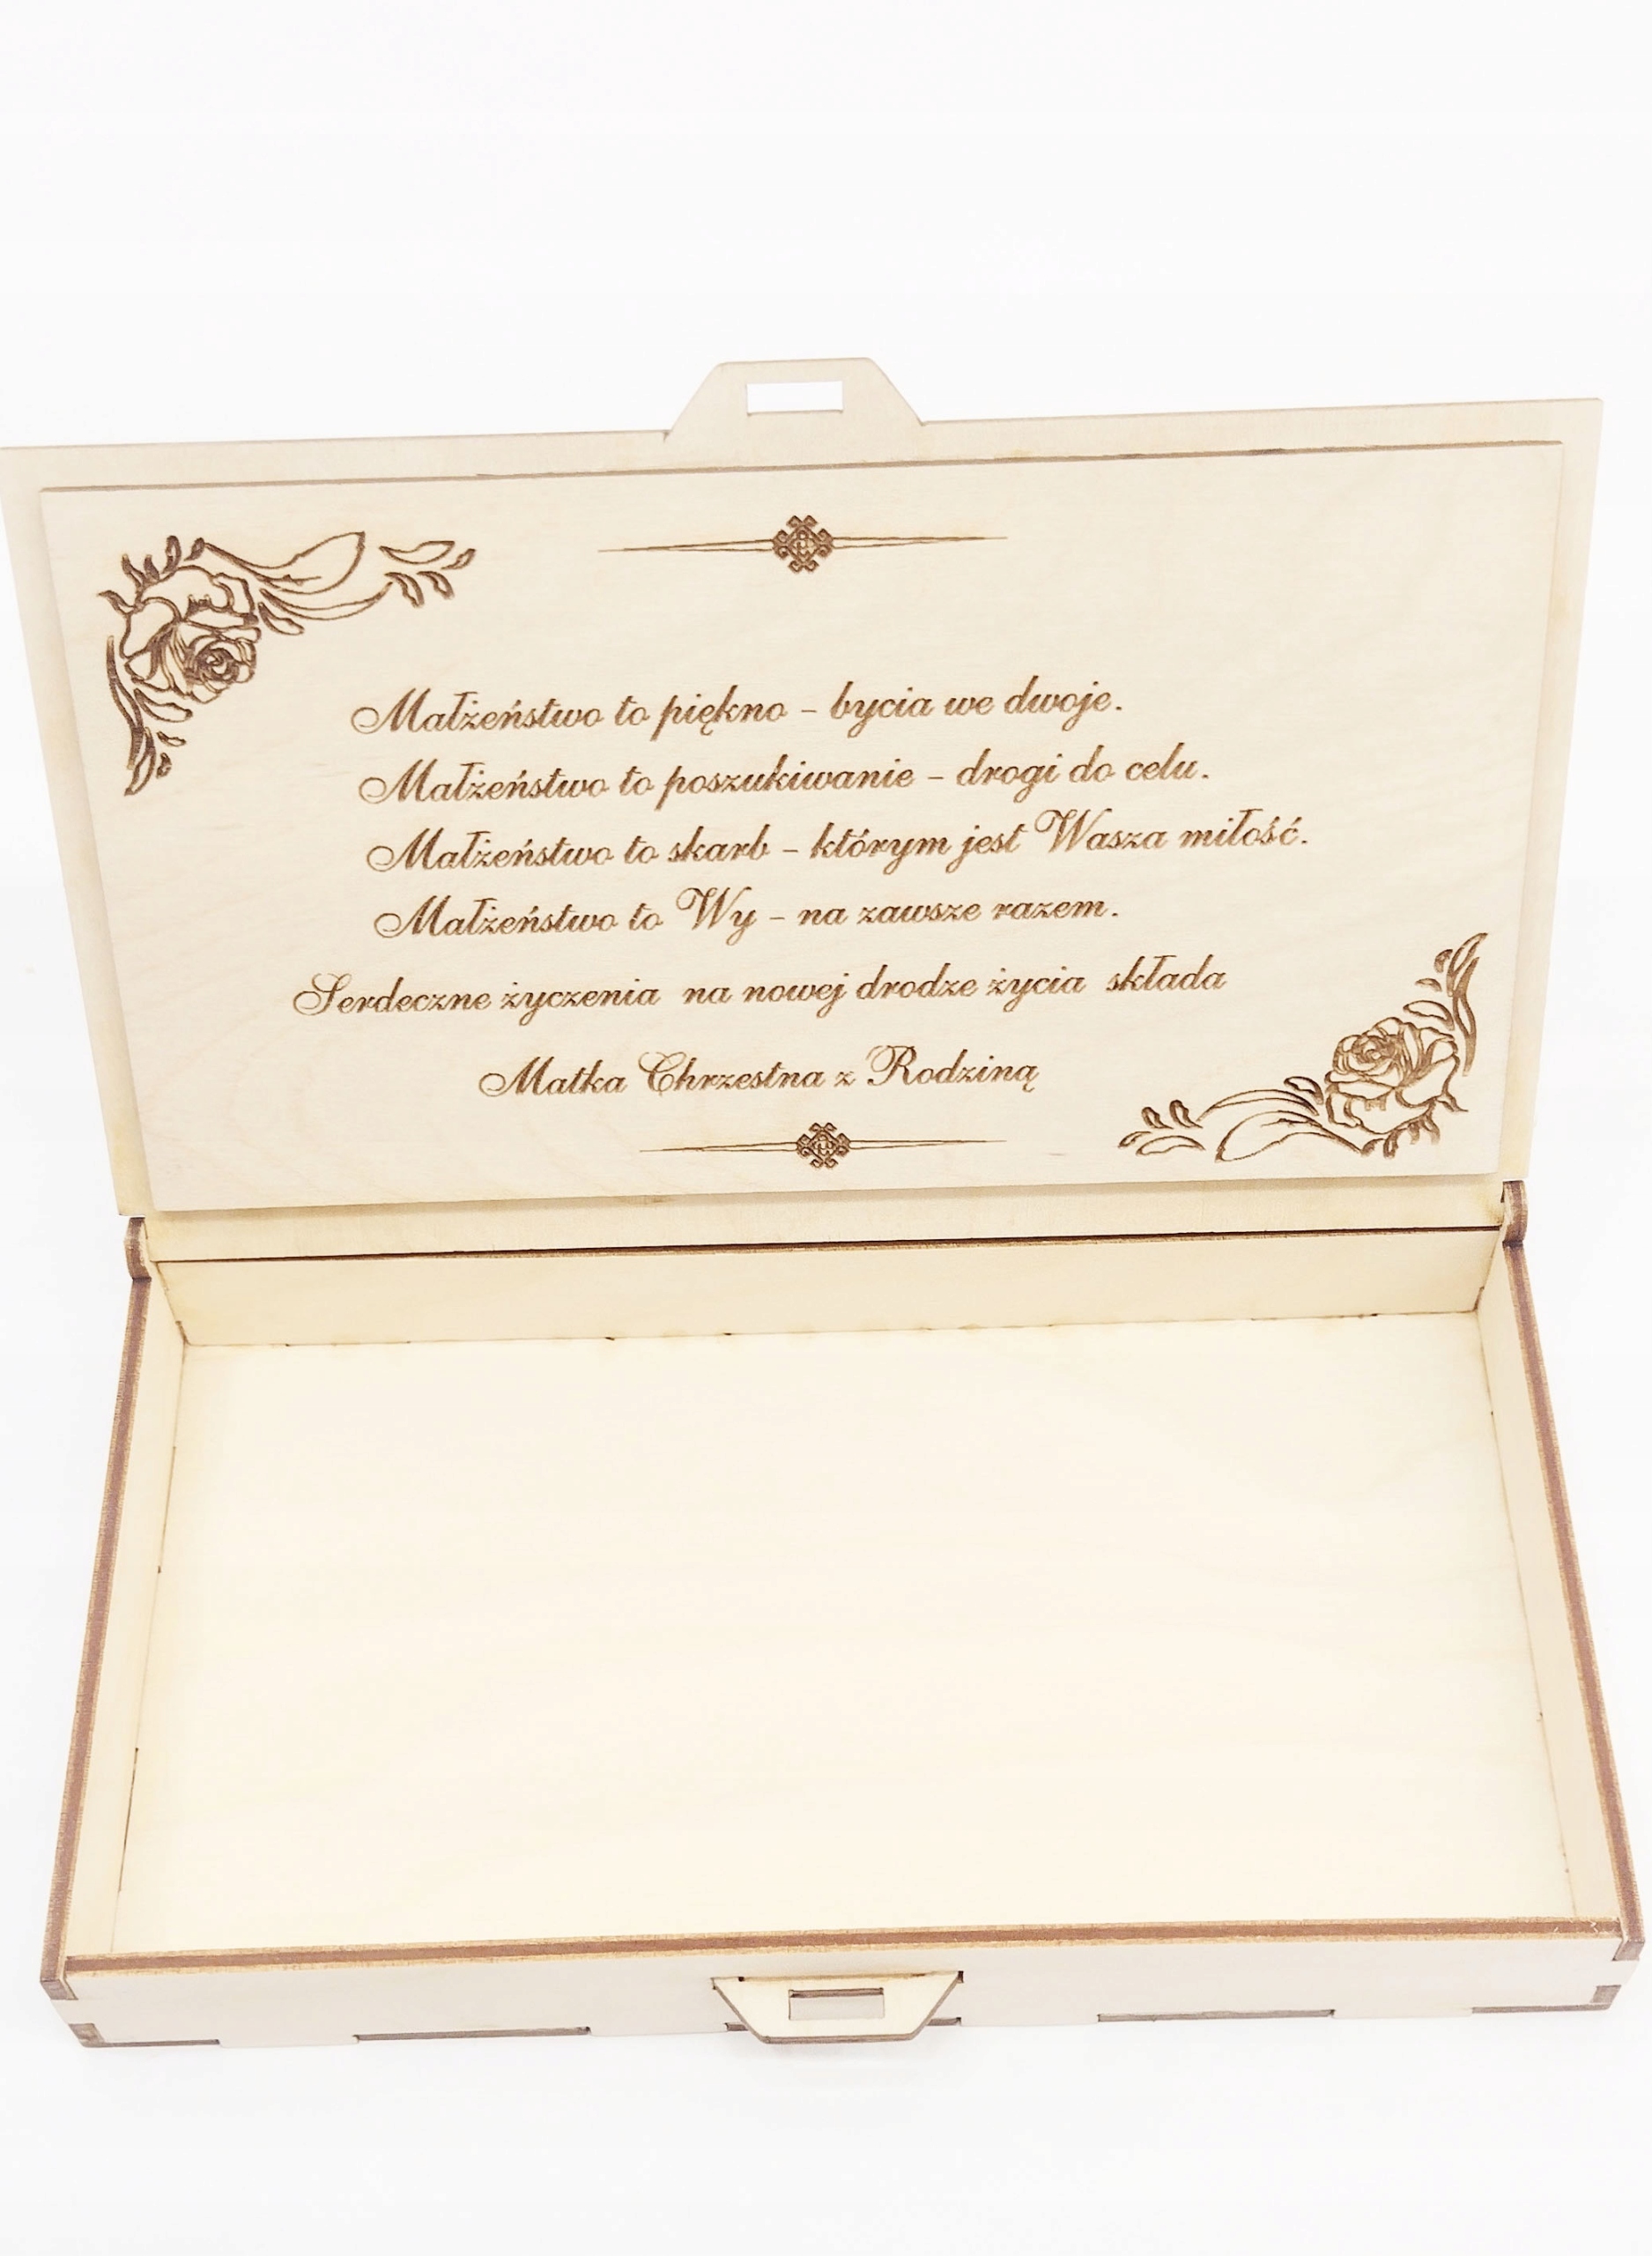 Małżeństwo to piękno - bycia we dwoje.
Małżeństwo to poszukiwanie - drogi do celu.
Małżeństwo to skarb - którym jest Wasza miłość.
Małżeństwo to Wy - na zawsze razem.
Serdeczne życzenia na nowej drodze życia składa
Matka Chrzestna z Rodziną